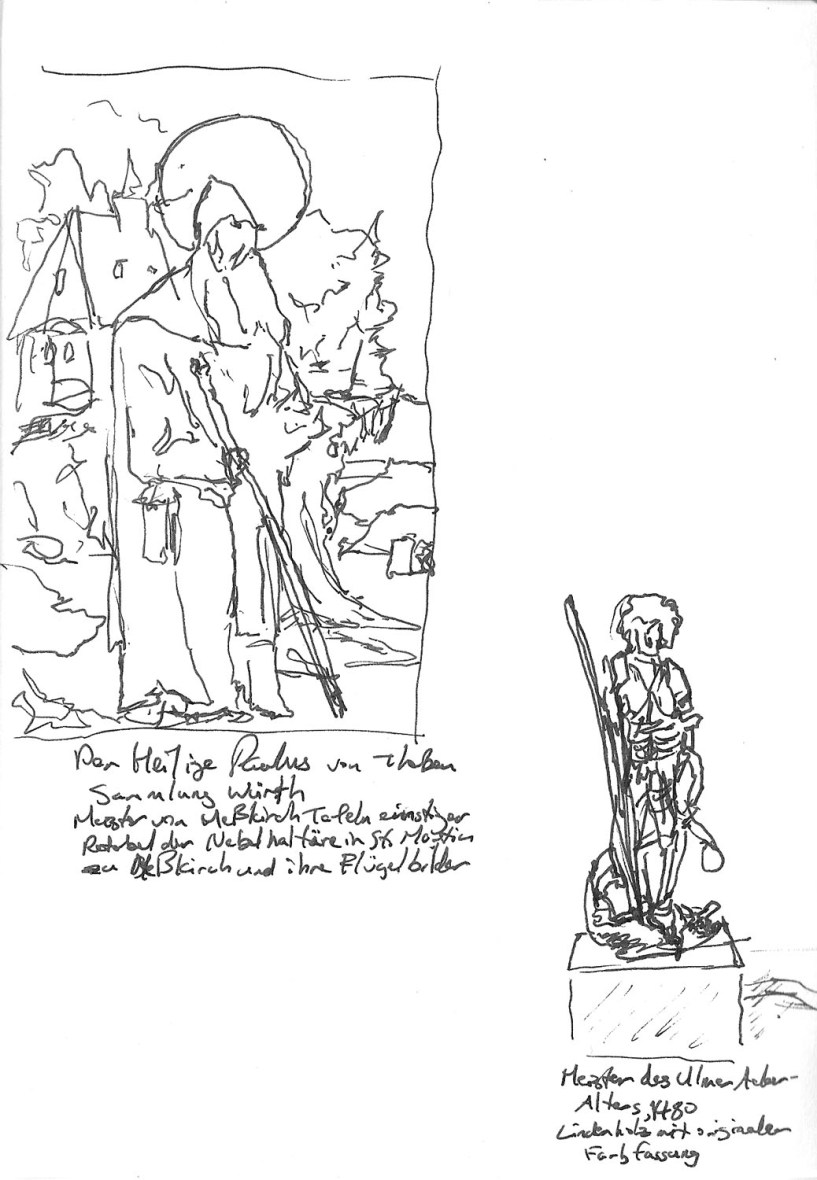 Der Heilige Paulus von Theben
Sammlung Würth
Meister von Meßkirch Tafeln einstiger
Retabel der Nebenaltäre in St. Martin
zu Meßkirch und ihre Flügelbilder
Meister des Ulmer
Altars, 1480
Lindenholz mit originalen
Farbfassung